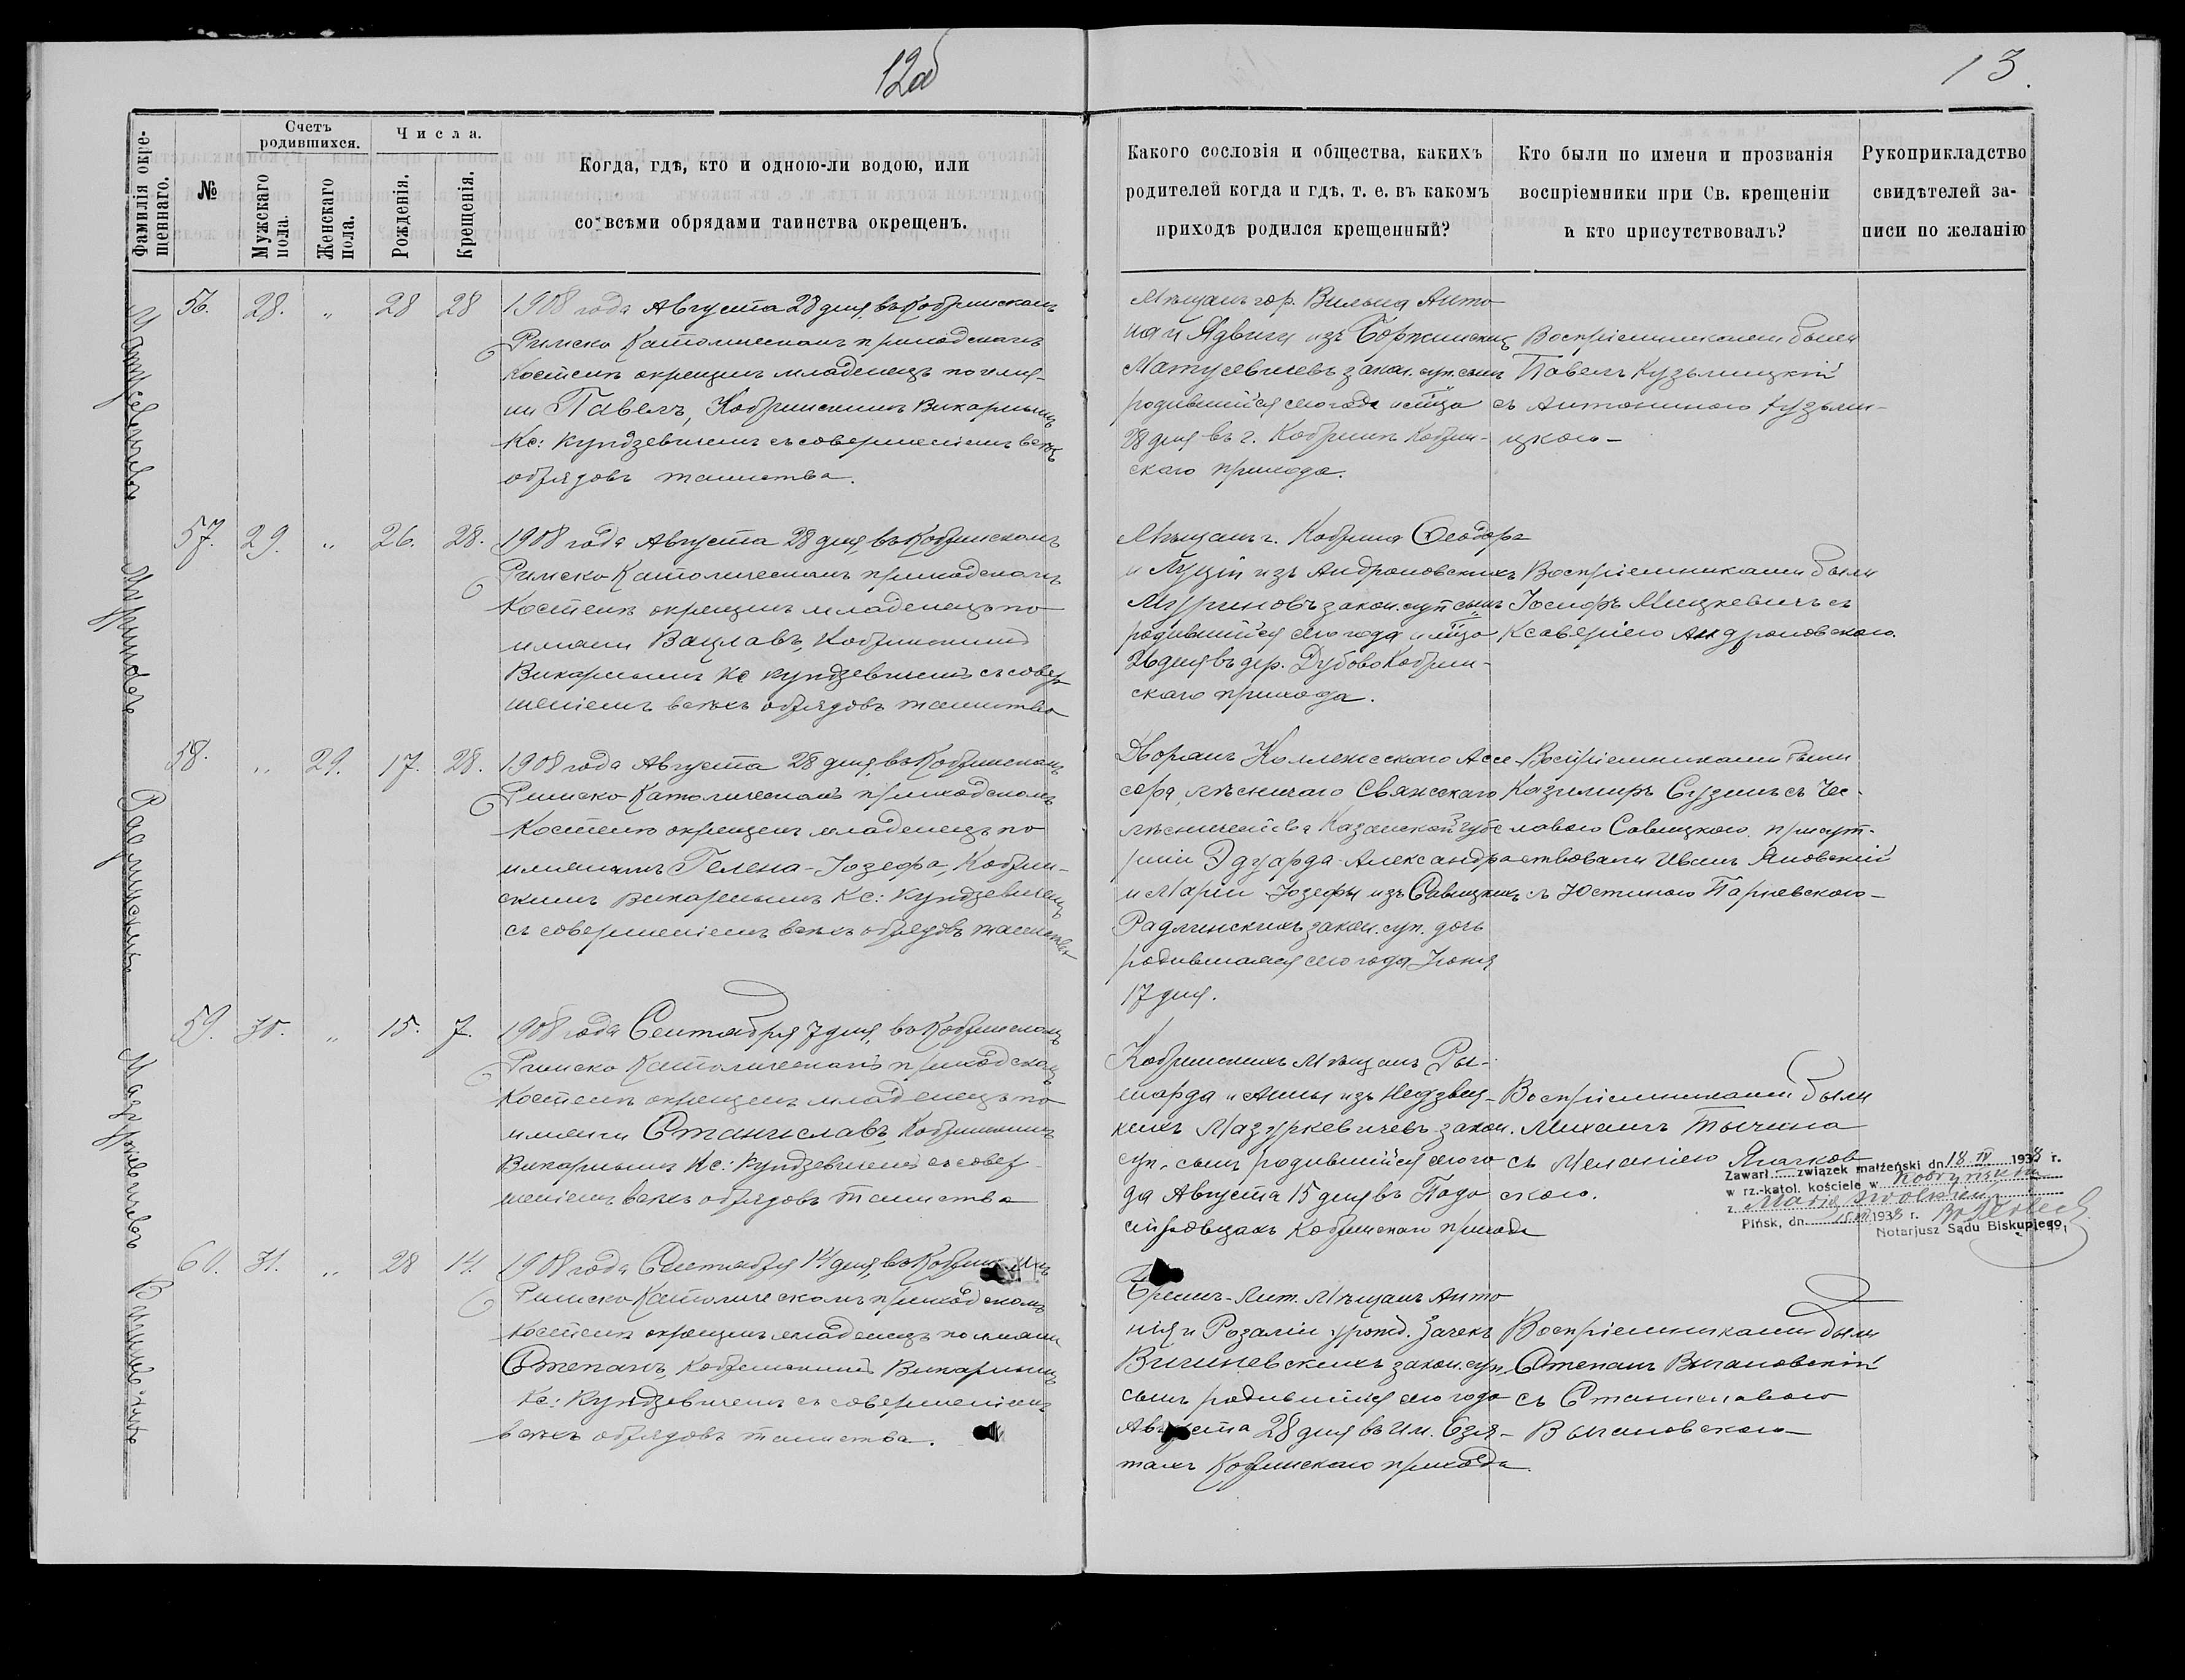 12об
13.
Фамилія окрещеннаго.
№
Счетъ родившихся.
Мужскаго пола.
Женскаго пола.
Числа.
Рожденія.
Крещенія.
Когда, гдѣ, кто и одною-ли водою, или
со всѣми обрядами таинства окрещенъ.
Какого сословія и общества, какихъ
родителей когда и гдѣ, т. е. въ какомъ
приходѣ родился крещенный?
Кто были по имени и прозванія
воспріемники при Св. крещеніи
и кто присутствовалъ?
Рукоприкладство
свидѣтелей за-
писи по желанію
Матусевичевъ
56. 28. „ 28 28
1908 года Августа 28 дня, въ Кобринскомъ
Римско Католическомъ приходскомъ
Костелѣ окрещенъ младенецъ по име-
ни Павелъ, Кобринскимъ Викарнымъ
Кс: Кундзевичемъ съ совершеніемъ всѣхъ
обрядовъ таинства.
Мѣщанъ гор. Вильна Анто
на и Ядвиги изъ Боржинскихъ
Матусевичевъ закон. суп. сынъ
родившійся сего года и м-ца
28 дня въ г. Кобринѣ Кобрин-
скаго прихода.
Воспріемниками были
Павелъ Кузьмицкій
съ Антониною Кузьми-
цкою
Муриновъ
57. 29. „ 26. 28.
1908 года Августа 28 дня, въ Кобринскомъ
Римско Католическомъ приходскомъ
Костелѣ окрещенъ младенецъ по
имени Вацлавъ, Кобринскимъ
Викарнымъ Кс Кундзевичемъ съ совер
шеніемъ всѣхъ обрядовъ таинства
Мѣщанъ г. Кобрина Ѳеодора
и Луціи изъ Андроновскихъ
Муриновъ закон. суп сынъ
родившійся сего года и м-ца
26 дня въ дер. Дубово Кобрин-
скаго прихода.
Воспріемниками были
Іосифъ Мицкевичъ съ
Ксаверіею Андроновскою.
Радлинскихъ
58. „ 29. 17. 28.
1908 года Августа 28 дня, въ Кобринскомъ
Римско Католическомъ приходскомъ
Костелѣ окрещенъ младенецъ по
именамъ Гелена-Іозефа, Кобрин-
скимъ Викарнымъ Кс: Кундзевичемъ
съ совершеніемъ всѣхъ обрядовъ таинства
Дворянъ Коллежскаго Ассе
сора, лѣсничаго Свяжскаго
лѣсничейства Казанской губе
рніи Эдуарда-Александра
и Маріи Іозефы изъ Савицкихъ
Радлинскихъ закон. суп. дочь
родившаяся сего года Іюня
17 дня.
Воспріемниками были
Казимиръ Сузинъ съ Чес-
лавою Савицкою. присут-
ствовали Иванъ Яновскій
съ Юстиною Парневскою
Мазуркевичевъ
59. 30. „ 15. 7.
1908 года Сентября 7 дня, въ Кобринскомъ
Римско Католическомъ приходскомъ
Костелѣ окрещенъ младенецъ по
имени Станиславъ, Кобринскимъ
Викарнымъ Кс: Кундзевичемъ съ совер-
шеніемъ всѣхъ обрядовъ таинства
Кобринскихъ Мѣщанъ Ры-
шарда и Анны изъ Недзвец-
кихъ Мазуркевичевъ закон.
суп. сынъ родившійся сего го
да Августа 15 дня въ
Кобринскаго прихода
Воспріемниками были
Михаилъ Тычина
съ Меланіею
скою.
Zawarł związek małżeński dn 18 IV 1938 r.
w rz.-katol. kościele w Kobryniu
z Marią
Pińsk, dn. 1938 r.
Notarjusz Sądu Biskupiego
60. 31. „ 28 14.
1908 года Сентября 14 дня, въ Кобрин
Римско Католическомъ приходскомъ
Костелѣ окрещенъ младенецъ по имени
Степанъ, Кобринскимъ Викарнымъ
Кс: Кундзевичемъ съ совершеніемъ
всѣхъ обрядовъ таинства.
Брестъ-Лит. Мѣщанъ Анто
нія и Розаліи урожд. Зачекъ
закон. суп.
сынъ родившійся сего года
Августа 28 дня въ им.
Кобринскаго прихода.
Воспріемниками были
Степанъ Выгановскій
съ Станиславою
Выгановскою